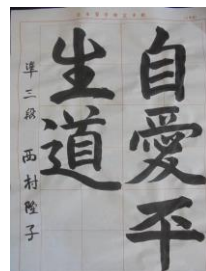 自愛平
生道
準三段 西村隆子